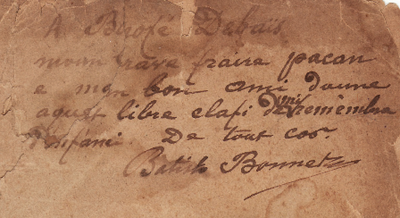 A Birofé Debais
moun rare fraire pacan
e mon bon ami doune
aquest libre clafi de mi remembra
d'enfanci. De tout cor
Batisto Bonnet